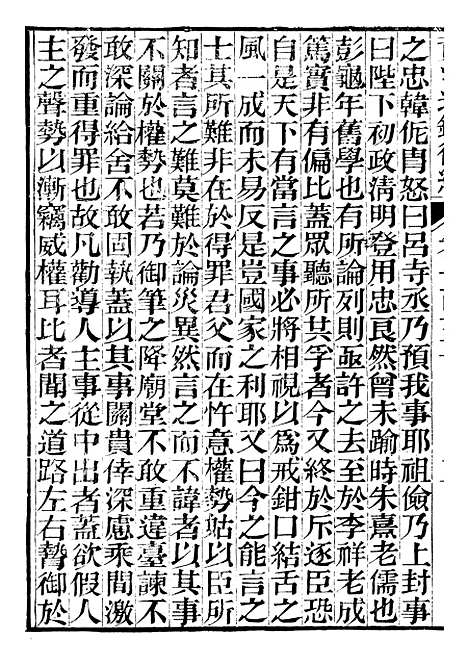 之忠韓侂胄怒曰呂寺丞乃預我事耶祖儉乃上封事
曰陛下初政淸明登用忠良然曾未踰時朱熹老儒也
彭龜年舊學也有所論列則亟許之去至於李祥老成
篤實非有偏比蓋眾聽所共孚者今又終於斥逐臣恐
自是天下有當言之事必將相視以爲戒鉗口結舌之
風一成而未易反是豈國家之利耶又曰今之能言之
士其所難非在於得罪君父而在忤意權勢姑以臣所
知者言之難莫難於論災異然言之而不諱者以其事
不關於權勢也若乃御筆之降廟堂不敢重違臺諫不
敢深論給舍不敢固執蓋以其事關貴倖深慮乘間激
發而重得罪也故凡勸導人主事從中出者蓋欲假人
主之聲勢以漸竊威權耳比者聞之道路左右䞇御於